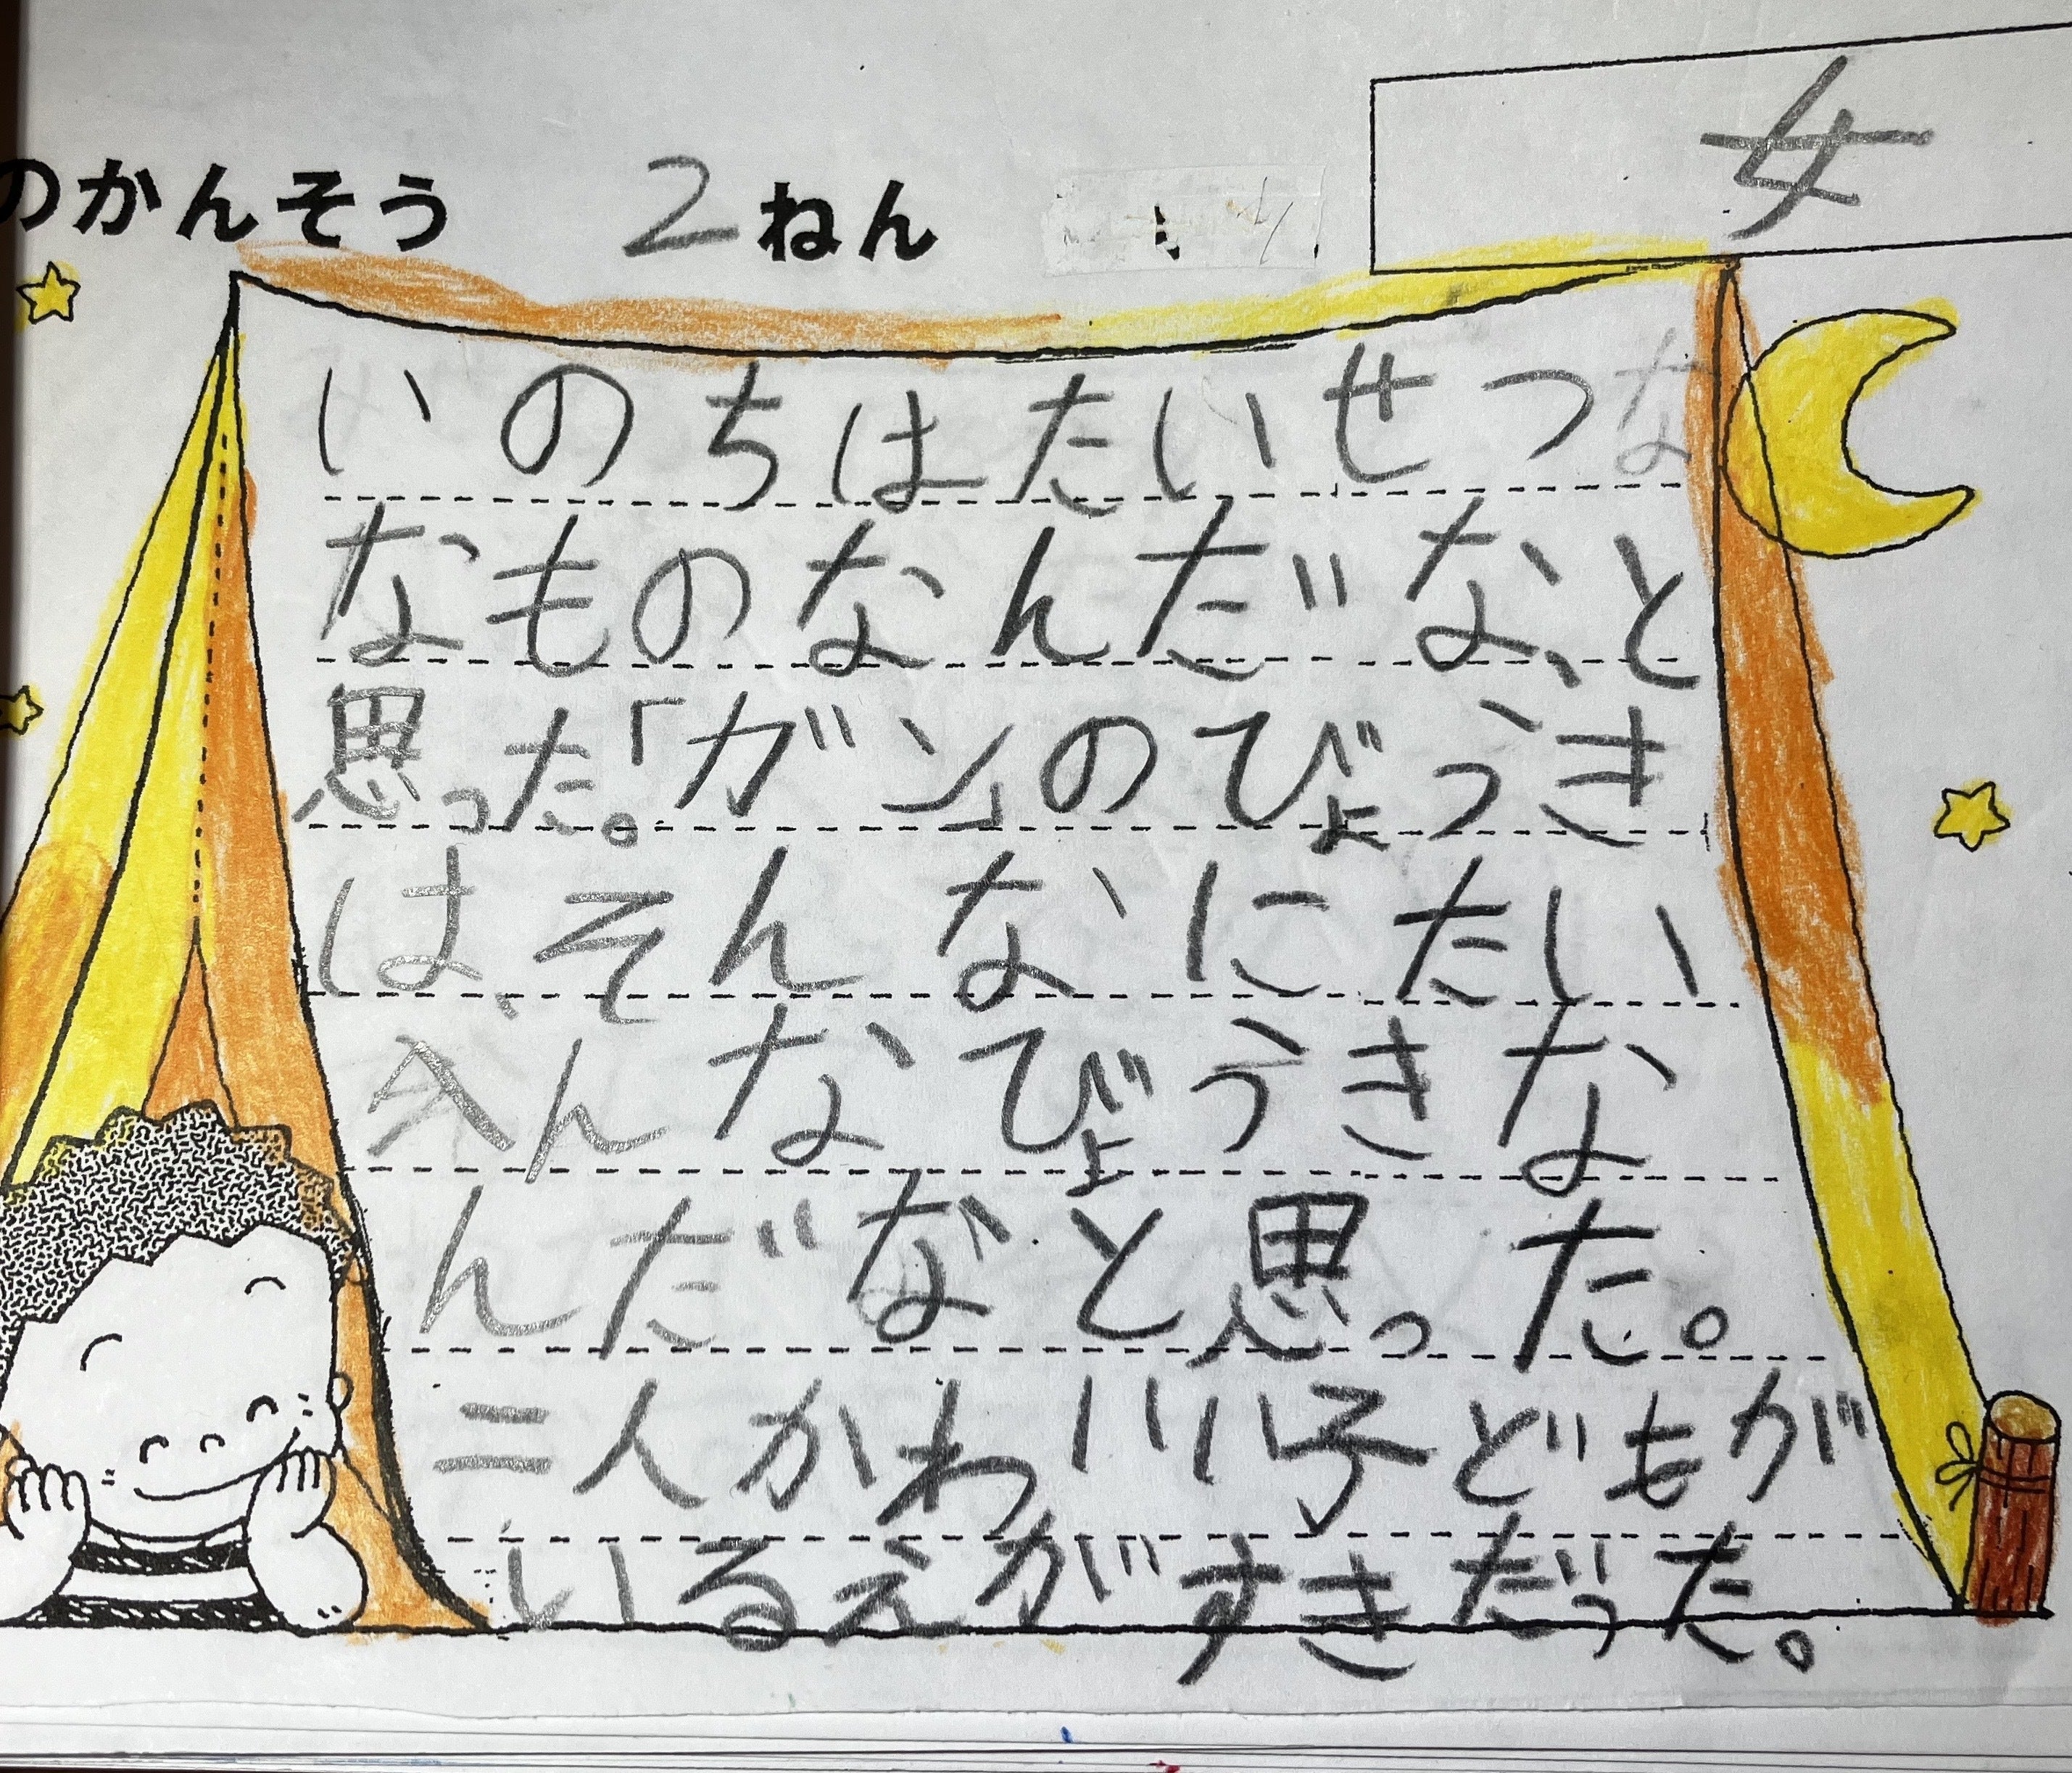 のかんそう 2ねん 女
いのちはたいせつな
なものなんだな、と
思った。「ガン」のびょうき
は、そんなにたい
へんなびょうきな
んだなと思った。
二人かわいいい子どもが
いるえがすきだった。